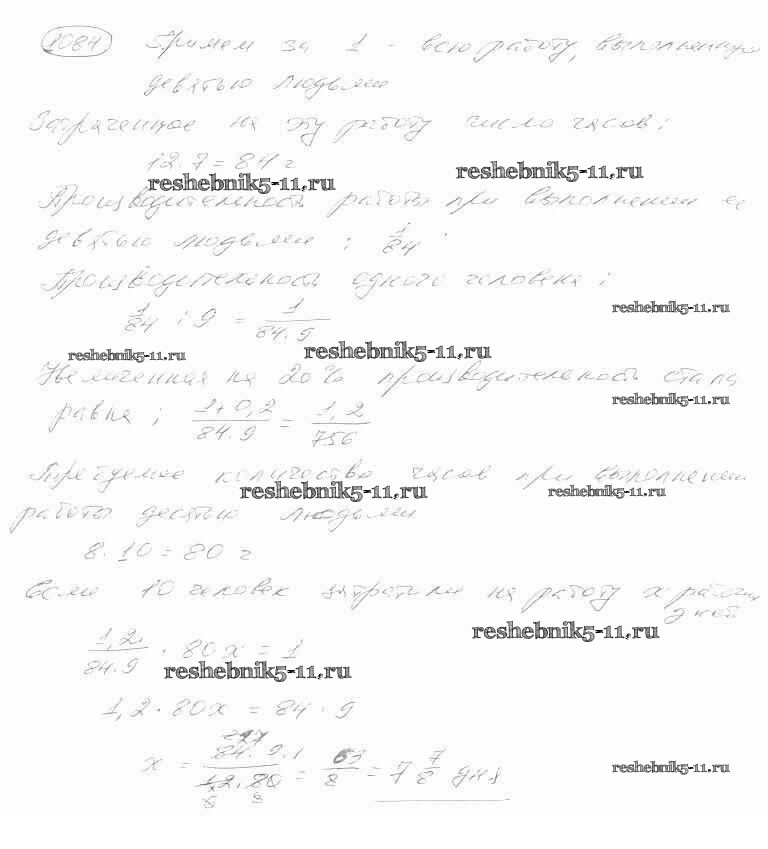 1084 Примем за 1 - всю работу, выполненную
девятью людьми
Затраченное на эту работу число часов:
12·7=84 ч
reshebnik5-11.ru reshebnik5-11.ru
Производительность работы при выполнении ее
девятью людьми : 1/84 .
Производительность одного человека :
1/84 : 9 = 1/84·9
reshebnik5-11.ru
reshebnik5-11.ru reshebnik5-11.ru
на 20% производительность стала
reshebnik5-11.ru
равна ; 1+0,2/84·9 = 1,2/756
Требуемое количество часов при выполнении
reshebnik5-11.ru reshebnik5-11.ru
работы десятью людьми
8·10=80 ч
если 10 человек затратили на работу x рабочих
дней
reshebnik5-11.ru
1,2/84·9 · 80x = 1
reshebnik5-11.ru
1,2·80x = 84·9
x = 84·9·1/1,2·80 = 63/8 = 7 7/8 дня
reshebnik5-11.ru